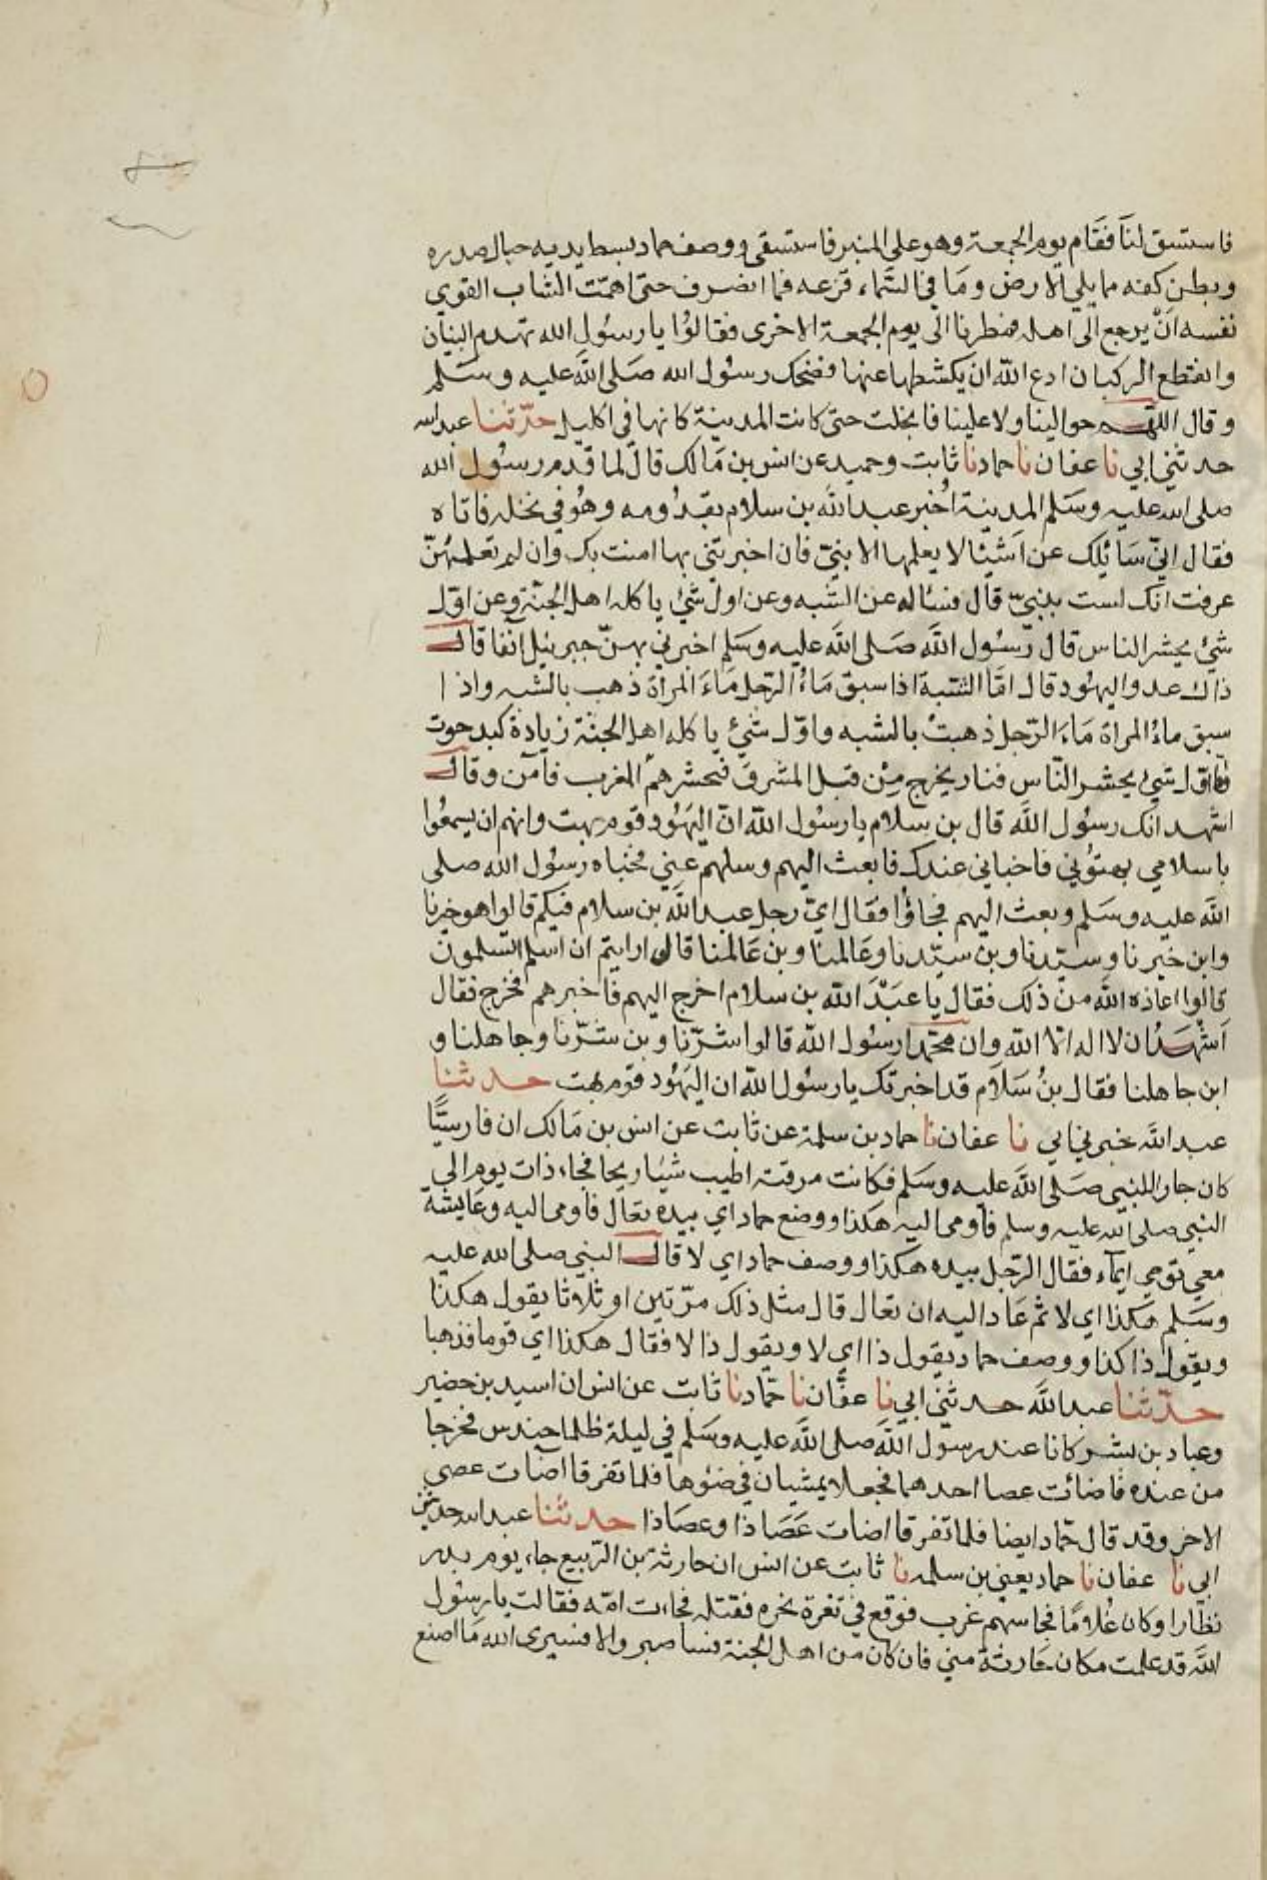 فاستسق لنا فقام يوم الجمعة وهو على المنبر فاستسقى ووصف حماد بسط يديه حيال صدره
وبطن كفه مما يلي الارض وما في السماء قزعه فما انصرف حتى اهمت الشاب القوي
نفسه ان يرجع الى اهله فمطرنا الى يوم الجمعة الاخرى فقالوا يا رسول الله تهدم البنيان
وانقطع الركبان ادع الله ان يكشطها عنها فضحك رسول الله صلى الله عليه وسلم
وقال اللهم حوالينا ولا علينا فانجلت حتى كانت المدينة كانها في اكليل حدثنا عبد الله
حدثني ابي نا عفان نا حماد نا ثابت وحميد عن انس بن مالك قال لما قدم رسول الله
صلى الله عليه وسلم المدينة اخبر عبد الله بن سلام بقدومه وهو في نخله فاتاه
فقال اني سائلك عن اشيا لا يعلمها الا بني فان اخبرتني بها امنت بك وان لم تعلمهن
عرفت انك لست بنبي قال فسئاله عن الشبه وعن اول شئ ياكله اهل الجنة وعن اول
شئ يحشر الناس قال رسول الله صلى الله عليه وسلم اخبرني بهن جبرئيل آنفا قال
ذاك عدو اليهود قال اما الشبة اذا سبق ماء الرجل ماء المراة ذهب بالشبه واذا
سبق ماء المراة ماء الرجل ذهبت بالشبه واول شئ ياكله اهل الجنة زيادة كبد حوت
واول شئ يحشر الناس فنار يخرج من قبل المشرق فتحشرهم المغرب فآمن وقال
اشهد انك رسول الله قال بن سلام يا رسول الله ان اليهود قوم بهت وانهم ان يسمعوا
باسلامي بهتوني فاخباني عندك فابعث اليهم وسلهم عني فخباه رسول الله صلى
الله عليه وسلم وبعث اليهم فجاؤا فقال اي رجل عبد الله بن سلام فيكم قالوا هو خيرنا
وابن خيرنا وسيدنا وبن سيدنا وعالمنا وبن عالمنا قال ارايتم ان اسلم اتسلمون
قالوا اعاذه الله من ذلك فقال يا عبد الله بن سلام اخرج اليهم فاخبرهم فخرج فقال
اشهد ان لا اله الا الله وان محمدا رسول الله قالوا شرنا وبن شرنا وجاهلنا و
ابن جاهلنا فقال بن سلام قد اخبرتك يا رسول الله ان اليهود قوم بهت حدثنا
عبد الله خبرني ابي نا عفان نا حماد بن سلمة عن ثابت عن انس بن مالك ان فارسيا
كان جار اللنبي صلى الله عليه وسلم فكانت مرقته اطيب شئ ريحا فجاء ذات يوم الى
النبي صلى الله عليه وسلم فاومى اليه هكذا ووضع حماد اي بيده تعال فاومى اليه وعايشة
معي تومي ايماء فقال الرجل بيده هكذا ووصف حماد اي لا قال النبي صلى الله عليه
وسلم هكذا اي لا ثم عاد اليه ان تعال قال مثل ذلك مرتين او ثلاثا يقول هكذا
ويقول ذا كذا ووصف حماد يقول ذا اي لا ويقول ذا لا فقال هكذا اي قوما فذهبا
حدثنا عبد الله حدثني ابي نا عفان نا حماد نا ثابت عن انس ان اسيد بن حضير
وعباد بن بشر كانا عند رسول الله صلى الله عليه وسلم في ليلة ظلما حندس فخرجا
من عنده فاضائت عصا احدهما فجعلا يمشيان في ضوها فلما تفرقا اضات عصى
الاخر وقد قال حماد ايضا فلما تفرقا اضات عصا ذا وعصا ذا حدثنا عبد الله حدثني
ابي نا عفان نا حماد يعني بن سلمه نا ثابت عن انس ان حارثة بن الربيع جاء يوم بدر
نظارا وكان غلاما فجا سهم غرب فوقع في ثغرة نحره فقتله فجاءت امه فقالت يا رسول
الله قد علمت مكان حارثة مني فان كان من اهل الجنة فسا صبر والا فسيرى الله ما اصنع